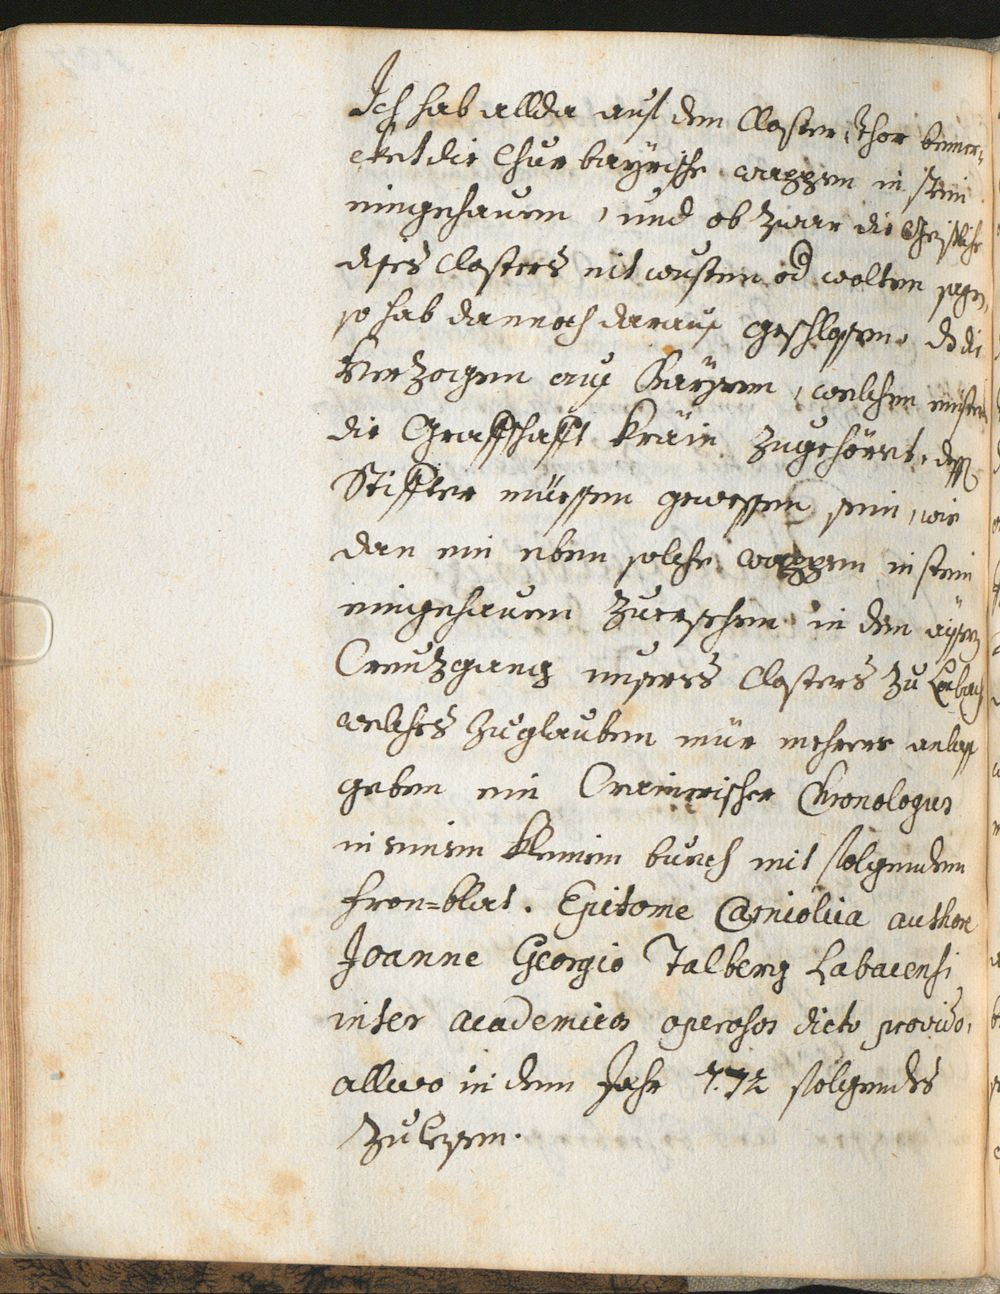 Ich hab allda auf dem Closter-thor bemer-
cket die Chur bayrische wappen in stein
eingehauen, und ob zwar die Geistliche
dises Closters nit wusten od wolten sagen,
so hab dannoch darauß geschlossen, dz die
Herzogen auß Bayren, welchen einstens
die Graffschafft Krain zugehöret, dessen
Stiffter müessen gewessen sein, wie
dan ein eben solche wappen in stein
eingehauen zuersehen in dem äussern
Creutzgang unsers Closters zu Laibach
welches zuglauben mür mehrers anlaß
geben ein Crainerischer Chronologus
in einem kleinen buech mit folgendem
Fron=blat. Epitome Carniolica authore
Joanne Georgio Talberg Labacensi
inter academicos operosos dicto provido,
allwo in dem Jahr 772 folgendes
zu lesen.